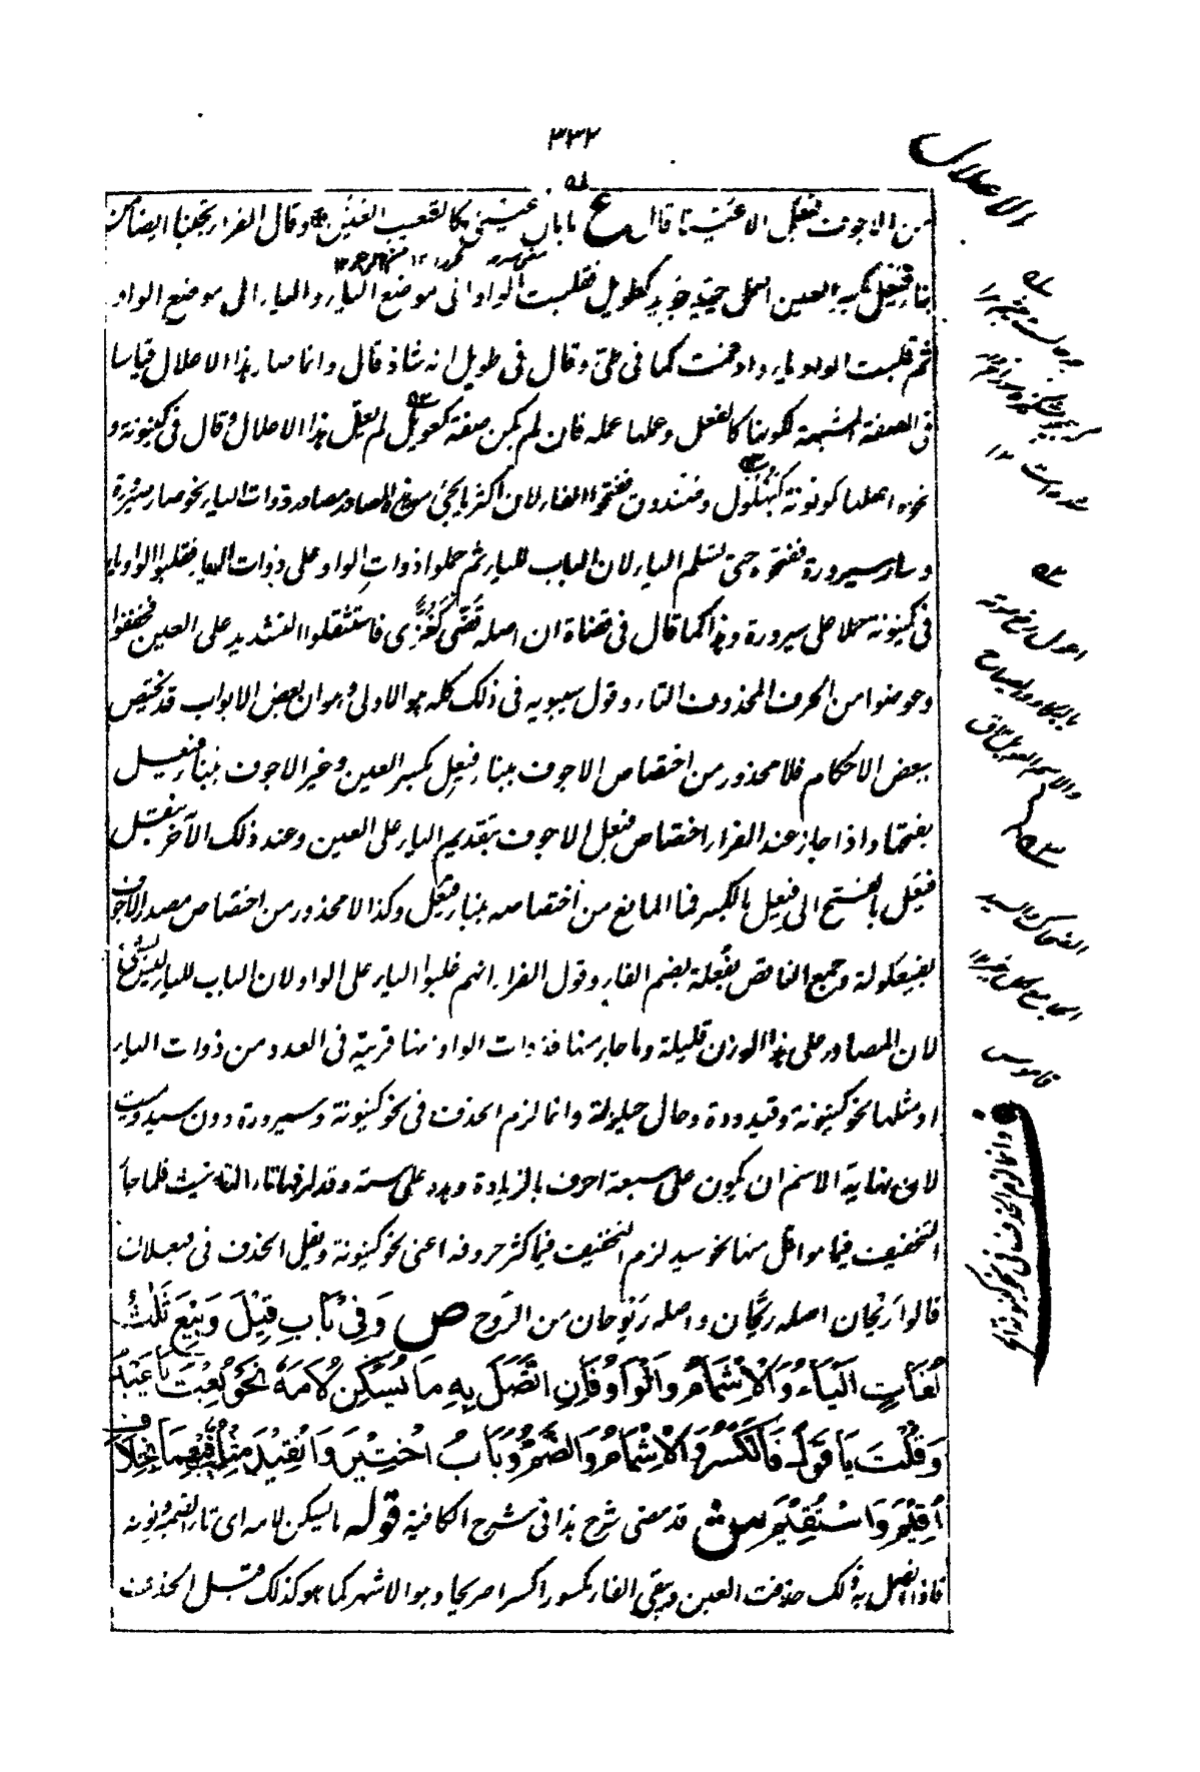 ٣٣٢
الاعلال
من الاجوف فيعل الا عين قال ع ما بال عينى كالشعيب العين وقال الفراء تجنبا ايضا من
بناء فيعل بكسر العين اصل جيد جويد كطويل فقلبت الواو الى موضع الياء والياء الى موضع الواو
ثم قلبت الواو ياء وادغمت كما فى طى وقال فى طويل انه شاذ قال وانما صار هذا الاعلال قياسا
فى الصفة المشبهة لكونها كالفعل وعملها عمله فان لم يكن صفة كعويل لم يعل هذا الاعلال وقال فى كينونة و
نحوه اصلها كونونة كبهلول وصندوق ففتحوا الفاء لان اكثر ما يجئ من هذه المصادر مصادر ذوات الياء نحو صار صيرورة
وسار سيرورة ففتحوه حتى تسلم الياء لان الباب للياء ثم حملوا ذوات الواو على ذوات الياء فقلبوا الواو ياء
فى كينونة حملا على سيرورة وهذا كما قال فى قضاة ان اصله قضى كغزى فاستثقلوا التشديد على العين فخففوا
وعوضوا من الحرف المحذوف التاء وقول سيبويه فى ذلك كله هو الاولى وهو ان بعض الابواب قد يختص
ببعض الاحكام فلا محذور من اختصاص الاجوف ببناء فيعل بكسر العين وغير الاجوف ببناء فيعل
بفتحها واذا جاز عند الفراء اختصاص فعيل الاجوف بتقديم الياء على العين وعند ذلك الآخر بنقل
فيعل بالفتح الى فيعل بالكسر فما المانع من اختصاصه ببناء فيعل وكذا لا محذور من اختصاص مصدر الاجوف
بفيعلولة وجمع الناقص بفعلة بضم الفاء وقول الفراء انهم غلبوا الياء على الواو لان الباب للياء ليس بشئ
لان المصادر على هذا الوزن قليلة وما جاء منها فذوات الواو منها قريبة فى العدد من ذوات الياء
او مثلها نحو كينونة وقيدودة وحال حيلولة وانما لزم الحذف فى نحو كينونة وسيرورة دون سيد وميت
لان نهاية الاسم ان يكون على سبعة احرف بالزيادة وهذه على ستة وقد لزمها تاء التانيث فلما جاز
التخفيف فيما هو اقل منها نحو سيد لزم التخفيف فيما كثر حروفه اعنى نحو كينونة ويقل الحذف فى فيعلان
قالوا ريحان اصله ريحان واصله ريوحان من الروح ص وَفِى بَابِ قِيْلَ وَبِيْعَ ثَلٰثُ
لُغَاتٍ الْيَاءُ وَالْاِشْمَامُ وَالْوَاوُ فَاِنِ اتَّصَلَ بِهٖ مَا يُسَكِّنُ لَامَهٗ نَحْوُ بِعْتَ يَا عَبْدُ
وَقُلْتَ يَا قَوْلُ فَالْكَسْرُ وَالْاِشْمَامُ وَالضَّمُّ وَبَابُ اُخْتِيْرَ وَانْقِيْدَ مِثْلُهٗ فِيْهِمَا بِخِلَافِ
اُقِيْمَ وَاسْتُقِيْمَ ش قد مضى شرح هذا فى شرح الكافية قوله ما يسكن لامه اى تاء الضمير ونونه
فاذا اتصل به ذلك حذفت العين ويبقى الفاء مكسورا كسرا صريحا وهو الاشهر كما هو كذلك قبل الحذف
قاموس
وانما لزم الحذف فى نحو كينونة الخ